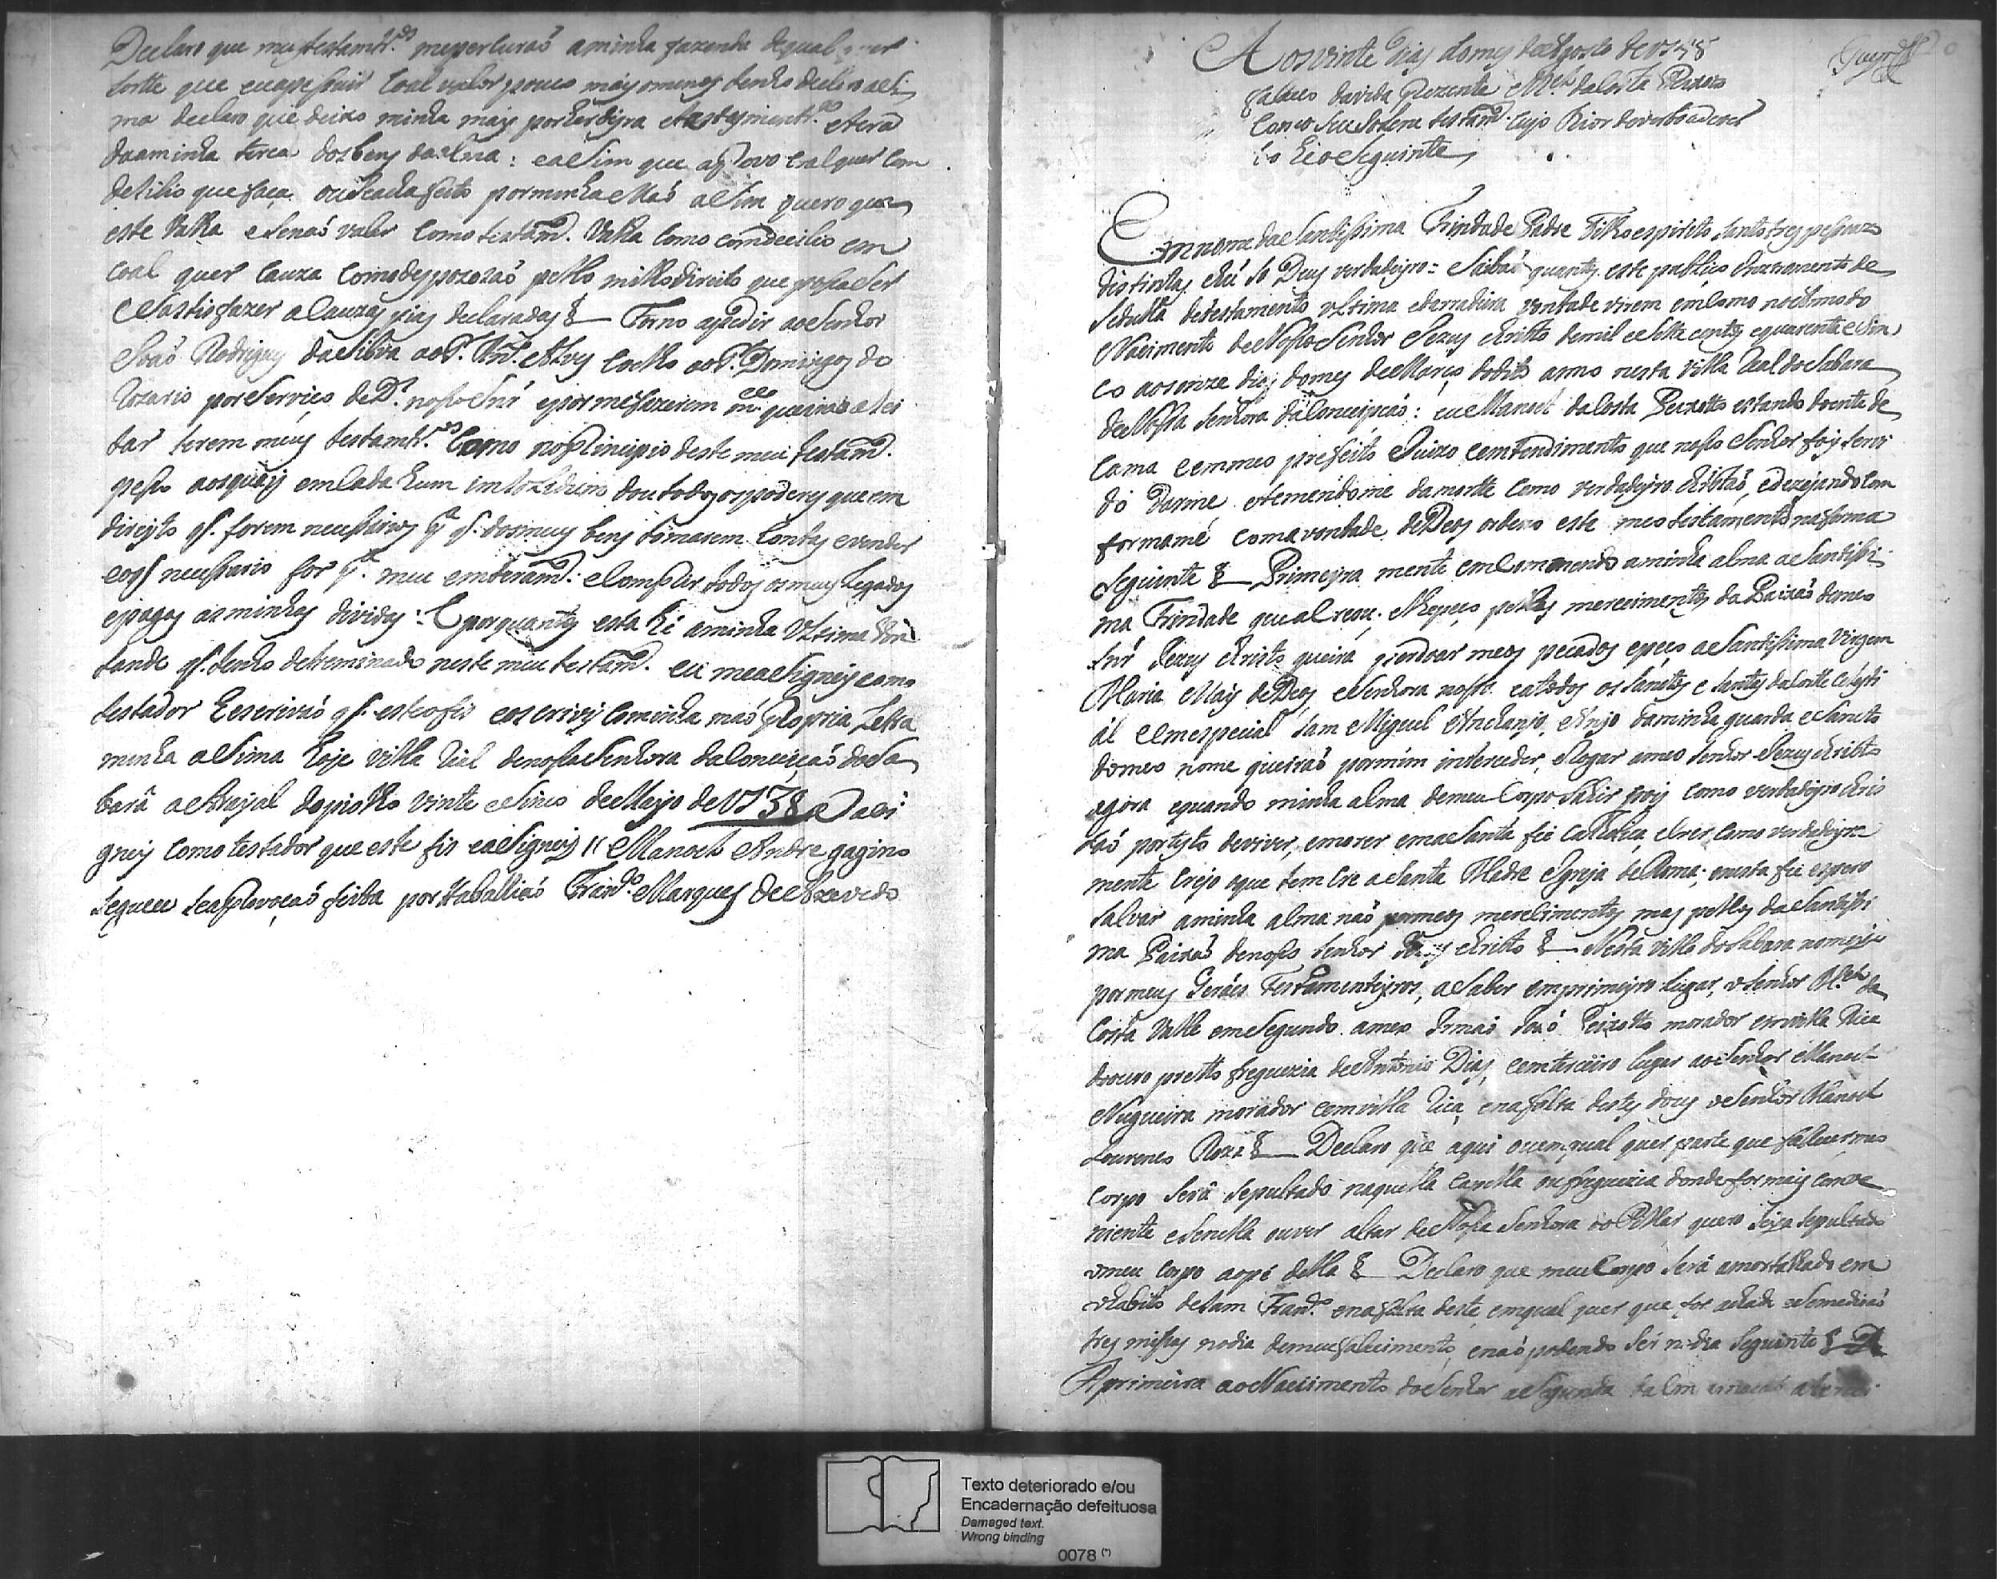 Declaro que meus testamtr.os me perturás aminha fazenda de qual quer
sorte que eu apesuir
ma declaro que deixo minha máy por herdeyra e testejmentr.a e tera
da aminha terca dos bens da elna: e aSim que aprovo cualquer Com
deSilio que faça ou Seacha feito por minha Maõ aSim quero que
este Valha e Senaõ valer Como testam.to Valha Como comdecilio em
coal quer Cauza
e Sastisfazer aCauzas pias declaradas § Torno apedir ao Senhor
Joaõ Rodrigues da Silva ao P. Ant.o Alves Coelho ao P.e Domingos do
Rozario por Serviço de D.s noso Snr e por me fazerem m.ce queiraõ aSei
tar serem meus testamtr.os Como no Principio deste meu testam.to
peso aos quais em Cada hum dou todos os poderes que em
direyto q. forem necesarios p.a q. dos meus bens tomarem Contas e vender
eos q necesario for p.a meu enteram.to e Comprir todos os meus Legados
e pagas as minhas dividas: E por quanto esta hé aminha Vltima Von
tande q. tenho detreminado neste meu testam.to eu meaSigney como
testador Eescrivaõ q. este o fis e o escrivy Com inha maõ Propria Letra
minha aSima hoje Villa Rial de nosa Senhora da Conceiçaõ do Sa
bará aRayal do pioLho vinte e Sinco de Mayo de 1738 aSi
gney como testador que este fis eaSigney // Manoel Andre gagino
Segueu Se aprovaçaõ feita por taballiaõ Fran.co Marques de Azevedo
Aos vinte dias do mes de Agosto de 1748
faleceo da vida Prezente M.el da Costa Peixoto
Com o Seu Solene testam.to Cujo Theor de verbo adver
bo hé o Seguinte
Em nome da Santissima Trindade Padre Filho espirito Santo tres pesoas
distintas e hú So Deus verdadeyro: Saibaõ quantos este publico instromento de
Sedulla de testamento vltima e derradeira vontade virem em Como no Anno do
Nacimento de Noso Senhor Jezus christo de mil e Sette centos e quarenta e Sin
co aos onze dias do mes de Março do dito anno nesta villa Real do Sabara
de Nossa Senhora da Conceipcaõ: eu Manoel da Costa Peixotto estando doente de
Cama e em meo prefeito Juizo e emtendimento que noso Senhor foy Servi
do Darme e temendome da mortte Como verdadeyro Christaõ, e dezejando Com
formamé Coma vontade de Deos ordeno este meo testamento na forma
Seguinte § Primeyra mente emComendo aminha alma aSantissi
ma Trindade que a creou; e lhe peço pellos merecimentos da Paixaõ de meo
Snr Jezus christo queira perdoar meos pecados e peço aSantissima Virgem
Maria May de Deos, e Senhora nosa e a todos os Sanctos e Santas da Corte Celesti
ál e em especial Sam Miguel Archanjo, e Anjo da minha guarda e Sancto
do meo nome queiraõ por mim interceder, e Rogar a meo Senhor Jezus christo
agora e quando minha alma de meu Corpo Sahir poiz como verdadeyro Chris
taõ portesto de viver, e morer em a Santa feé Catholica e crer como verdadeyra
mente Creyo o que tem e cre a Santa Madre Igreja de Roma; e nesta feé espero
Salvar aminha alma naõ por meos merecimentos mas pellos da Santissi
ma Paixaõ de noso Senhor Jezus christo § Nesta Villa do Sabara nomeyo
por meus Geráes Testamenteyros, a Saber em primeyro lugar, o Senhor M.el da
Costa Valle em Segundo a meo Irmaõ Joaõ Peixotto morador em villa Rica
do ouro pretto freguezia de Antonio Dias, e em terceiro lugar ao Senhor Manoel
Nugueira morador em villa Rica, e na falta destes dous o Senhor Manoel
Lourenco § Declaro que aqui ou em qual quer parte que falecer meo
Corpo Será Sepultado naquella Capella ou freguezia donde for mais Conve
niente e Se nella ouver altar de Nosa Senhora do Pillar quero Seja Sepultado
o meu Corpo ao pé della § Declaro que meu Corpo Será amortalhado em
o habito de Sam Fran.co e na falta deste, em qual quer que for achado e Se me diraõ
tres misas no dia de meu falecimento, e naõ podendo Ser no dia Seguinte §
A primeira ao Nacimento do Senhor a Segunda
Texto deteriorado e/ou
Encadernação defeituosa
Damaged text.
Wrong binding
0078 (*)